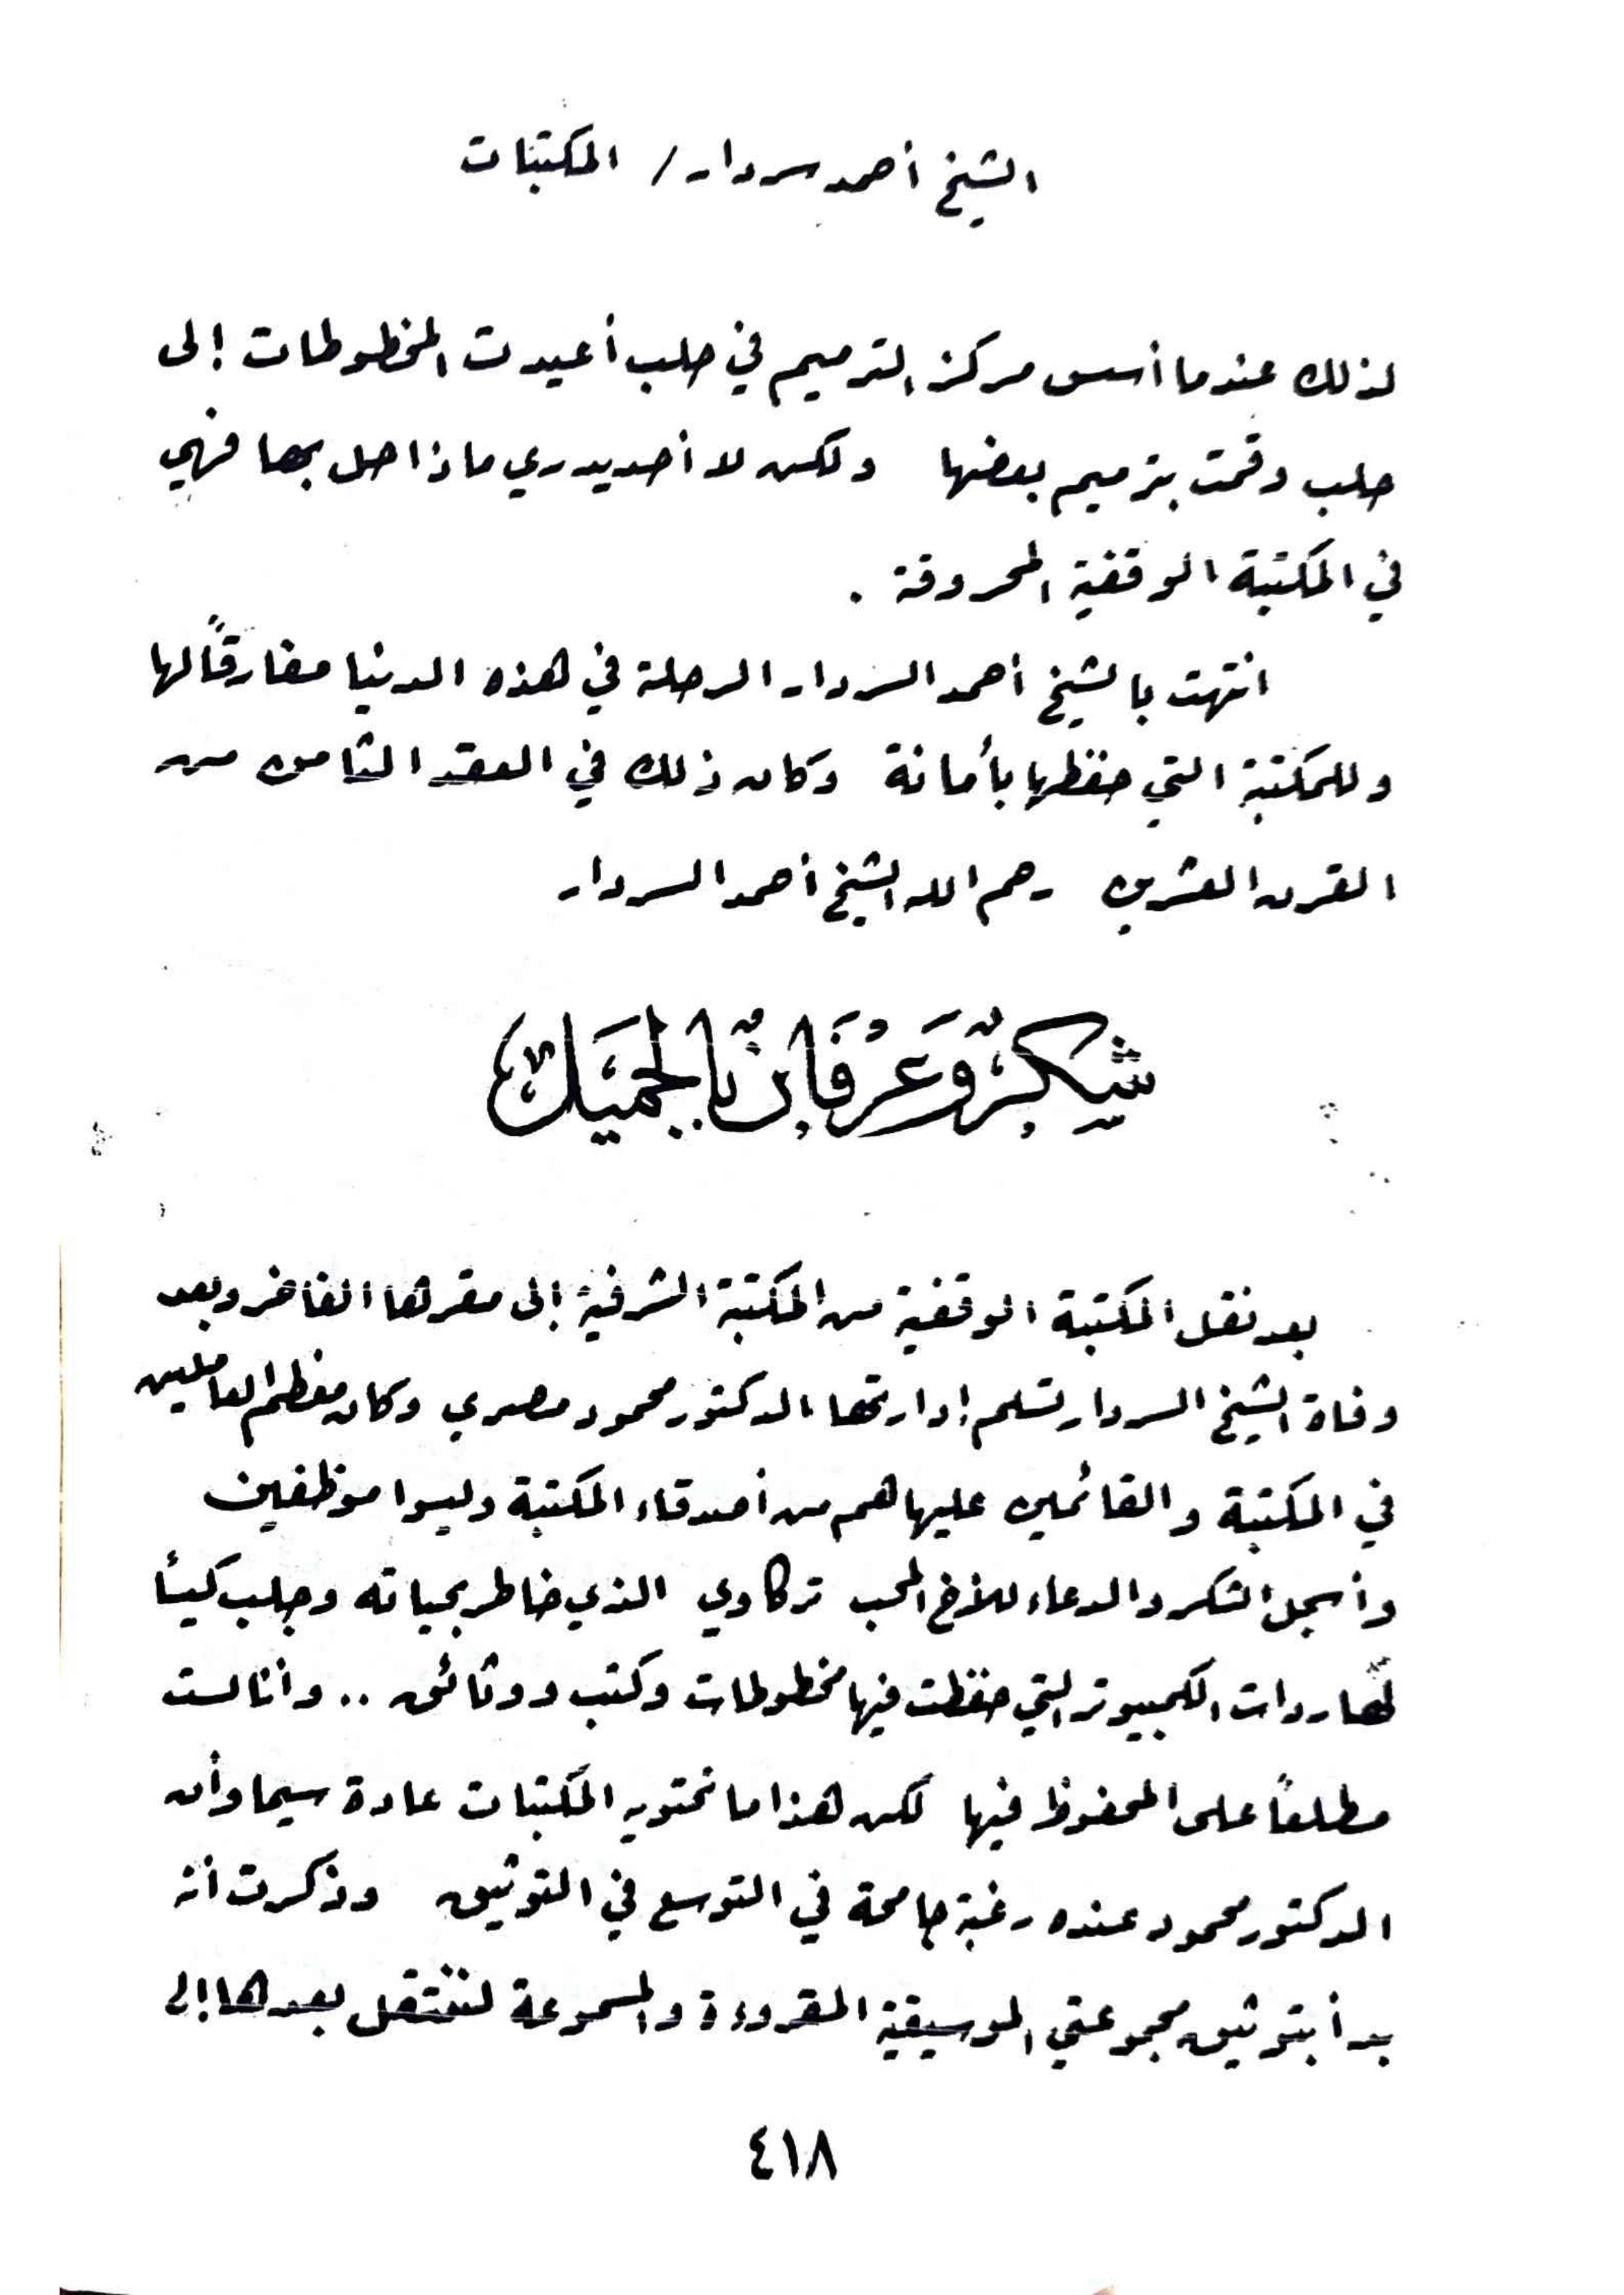 الشيخ أحمد سردار / المكتبات
لذلك عندما أسس مركز الترميم في حلب أعيدت المخطوطات إلى
حلب وقمت بترميم بعضها ولكن لا أحد يدري ماذا حل بها فهي
في المكتبة الوقفية المحروقة .
انتهت بالشيخ أحمد السردار الرحلة في هذه الدنيا مفارقاً لها
وللمكتبة التي حفظها بأمانة وكان ذلك في العقد الثامن من
القرن العشرين رحم الله الشيخ أحمد السردار
شكر وعرفان بالجميل
بعد نقل المكتبة الوقفية من المكتبة الشرفية إلى مقرها الفاخر وبعد
وفاة الشيخ السردار تسلم إدارتها الدكتور محمود مصري وكان معظم العاملين
في المكتبة والقائمين عليها هم من أصدقاء المكتبة وليسوا موظفين
وأسجل الشكر والدعاء للأخ المحب تركاوي الذي خاطر بحياته وجلب كيسأ
لهاردات الكمبيوتر التي حفظت فيها مخطوطات وكتب ووثائق .. وأنا لست
مطلعاً على المحفوظ فيها لكن هذا ما تحتويه المكتبات عادة سيما وأن
الدكتور محمود عنده رغبة جامحة في التوسع في التوثيق وذكرت أنه
بدأ بتوثيق مجموعتي الموسيقية المقروءة والمسموعة لننتقل بعدها إلى
٤١٨